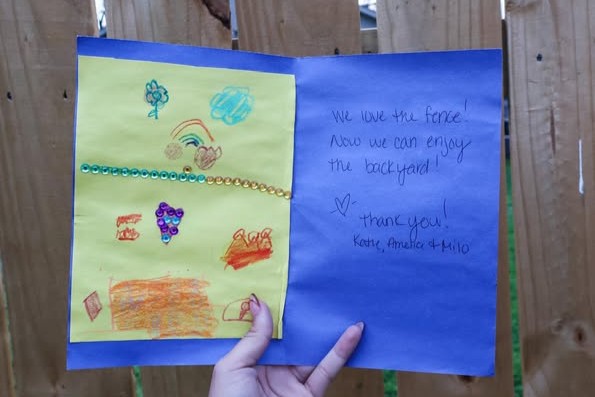 we love the fence!
Now we can enjoy
the backyard!
thank you!
Katie, Amelia & Milo